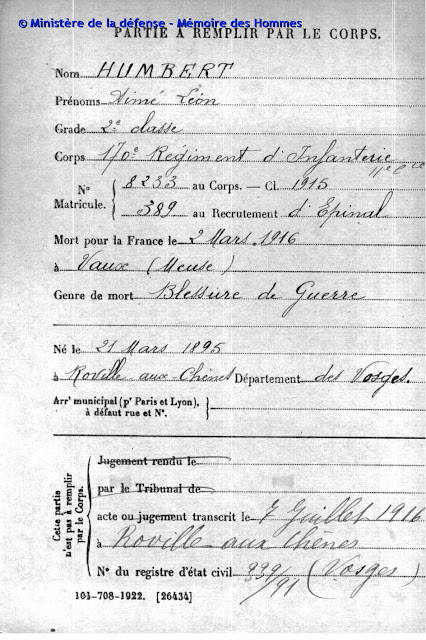 © Ministère de la défense - Mémoire des Hommes
PARTIE A REMPLIR PAR LE CORPS.
Nom HUMBERT
Prénoms Aimé Léon
Grade 2e classe
Corps 170e Régiment d'Infanterie
11e Cie
N° Matricule. { 8233 au Corps. — Cl. 1915
389 au Recrutement d'Epinal
Mort pour la France le 2 Mars 1916
à Vaux (Meuse)
Genre de mort Blessure de Guerre
Né le 21 Mars 1895
à Roville aux Chênes Département des Vosges.
Arrt municipal (pr Paris et Lyon),
à défaut rue et N°.
Cette partie n'est pas à remplir par le Corps.
Jugement rendu le
par le Tribunal de
acte ou jugement transcrit le 7 Juillet 1916
à Roville aux Chênes
N° du registre d'état civil 939/91 (Vosges)
101-708-1922. [26434]